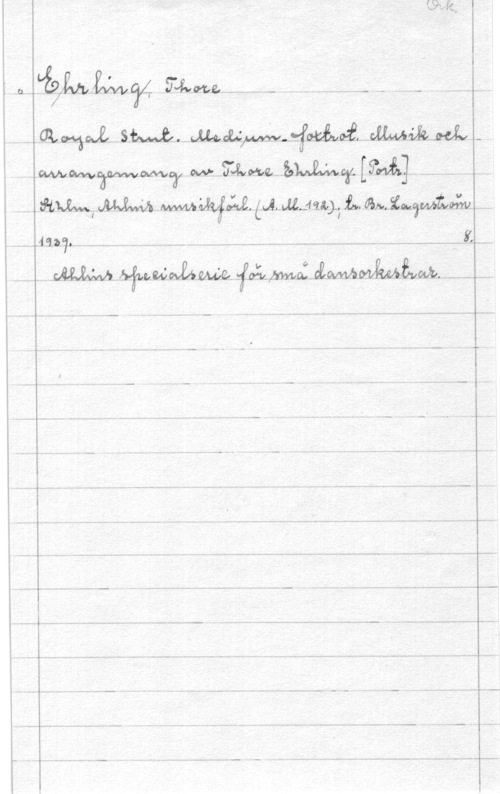 Ork.
Ehrling, Thore
Royal Strut. Medium-foxtrot. Musik och
arrangemang av Thore Ehrling. [Portr.]
Sthlm, Ahlins musikförl. (A. M. 192), tr. Br. Lagerström
1939. 8.
Ahlins specialserie för små dansorkestrar.